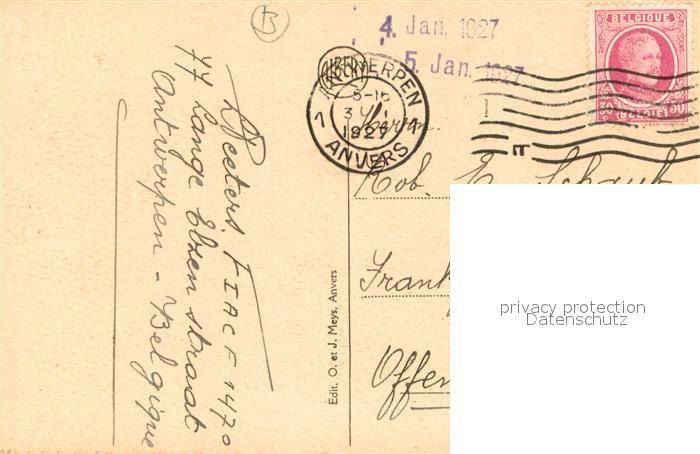 B
4. Jan. 1927
5. Jan. 1927
BELGIQUE
BELGIË
ANTWERPEN
1 1
1927
ANVERS
Peeters. FIACF 1470
77 Lange Elzen straat
Antwerpen - Belgique
Edit. O. et J. Meys, Anvers
Herrn
Rob. E. Schaub
Frank
Offen
privacy protection
Datenschutz